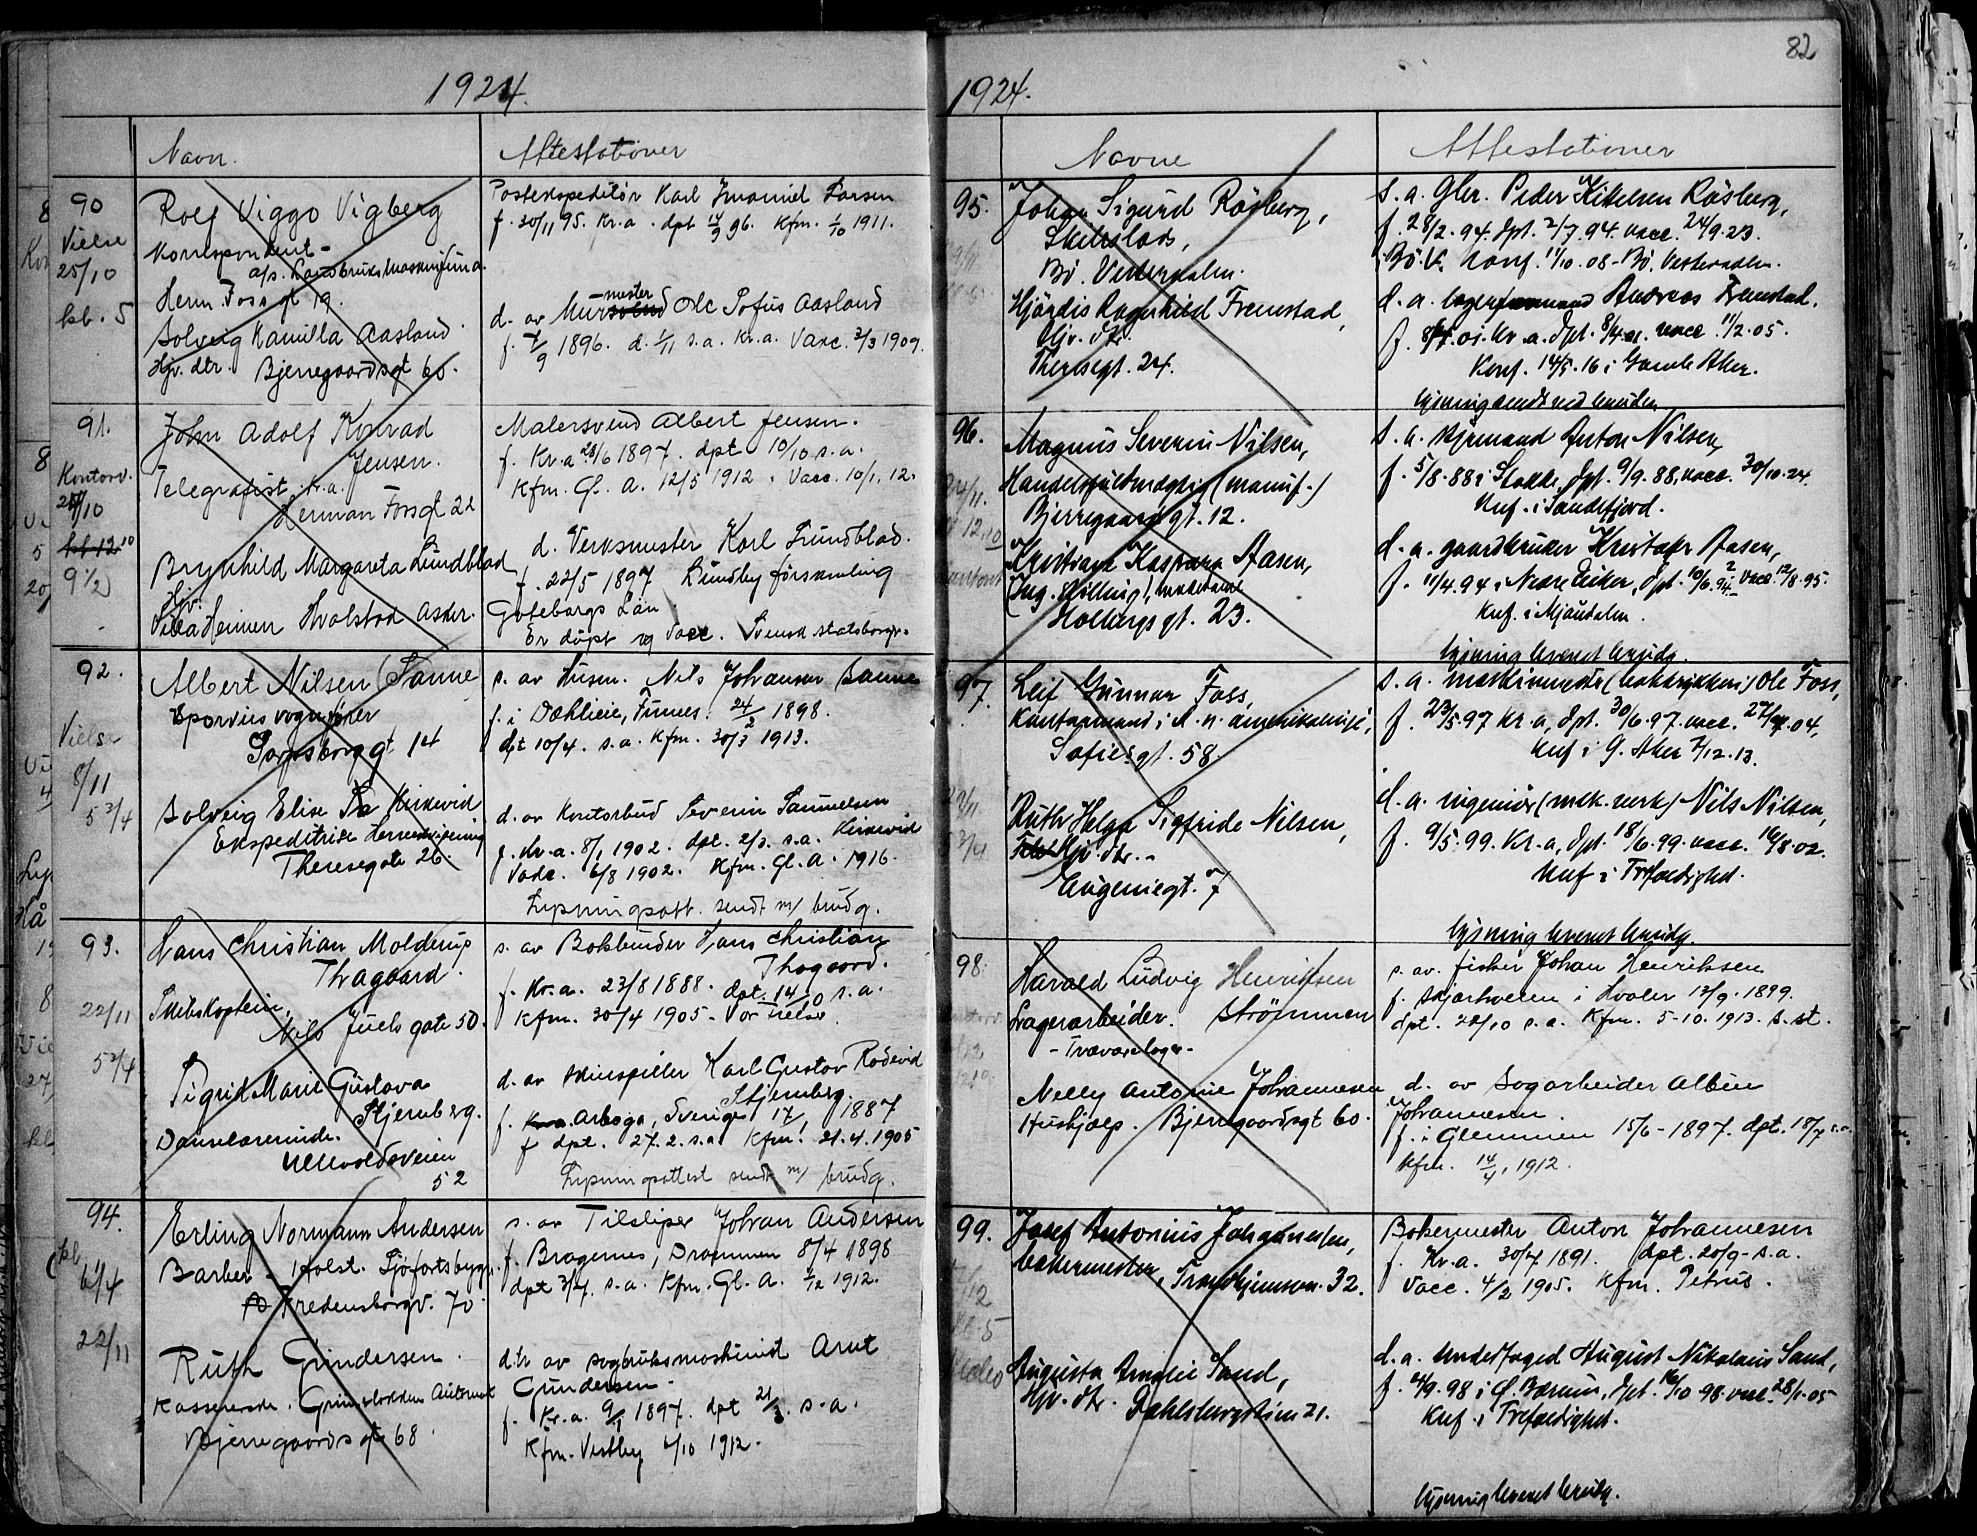 82
1924.
Navn. Attestationer
90
Vielse
25/10
kb. 5
Rolf Viggo Vigberg
Korrespondent -
Herm. Fossgt 19.
Solveig Kamilla Aasland.
Hjv. dtr. Bjerregaardsgt 60.
Postekspeditør Karl Larsen
f. 20/11 95. Kr.a. dpt 14/9 96. Kfm. 1/10 1911.
d. av Murmester Ole Sofus Aasland
f. 7/9 1896. d. 1/11 s.a. Kr.a. Vacc. 3/3 1909.
91.
Kontorv.
10
9 1/2
John Adolf Konrad
Jensen.
Telegrafist. Kr.a.
Herman Fossgt 22
Brynhild Margareta Lundblad
Hjv.
Villa Heimen Hvalstad Asker.
Malersvend Albert Jensen.
f. Kr.a 28/6 1897. dpt 10/10 s.a.
Kfm. Gl. A. 12/5 1912. Vacc. 10/1. 12.
d. Verksmester Karl Lundblad.
f. 22/5 1897 Lundby församling
Göteborgs Län
Er døpt og Vacc. Svensk statsborg.
92.
Vielse
8/11
5 3/4
Albert Nilsen Sanne
Sporveisvognfører
Sorgsborggt 14
Solveig Elise Kirkevid
Ekspeditrise
Theresegate 26.
s. av Husm. Nils Johansen Sanne
f. i Dæhlieie, Furnes. 24/2 1898.
dpt 10/4. s.a. Kfm. 30/3 1913.
d. av Kontorbud Severin Samuelsen
Kirkevid
f. Kr.a. 8/1 1902. dpt. 2/3. s.a.
Vacc. 6/8 1902. Kfm. Gl. A. 1916.
Lysningsatt. sendt m/ brudg.
93.
22/11
5 3/4
Hans Christian Molderup
Thagaard.
Skibskaptein,
Nils Juels gate 50.
Sigrid Marie Gustava
Stjernberg.
Danselærerinde.
Ullevoldsveien
52
s. av Bokbinder Hans Christian
Thagaard.
f. Kr.a. 23/8 1888. dpt. 14/10 s.a.
Kfm. 30/4 1905 - Vor Frelser.
d. av skuespiller Karl Gustav Rodevid
Stjernberg.
f. Arboga, Sverige 17/1 1887
dpt. 27. 2. s.a. Kfm. 21. 4. 1905
Lysningsattest sendt m/ brudg.
94.
22/11
Erling Normann Andersen
Barber - Holst. Sjøfartsbygn.
Fredensborgv. 70.
Ruth Gundersen.
Kassererske.
Bjerregaardsgt 68.
s. av Filsliper Johan Andersen
f. Bragernes, Drammen 8/4 1898
dpt 3/7. s.a. Kfm. Gl. A. 1/12 1912.
dtr av sagbruksmaskinist Arnt
Gundersen -
f. Kr.a. 9/1 1897. dpt 21/3. s.a.
Kfm. Vestby 6/10 1912.
1924.
Navne Attestationer
95.
Johan Sigurd Råsberg,
Bø. Vesteraalen.
Hjørdis Ragnhild Fremstad,
Hjv. dtr.
Theresegt. 24.
s. a. Gbr. Peder Kitelsen Råsberg,
f. 28/2. 94. dpt. 2/7. 94. vacc. 24/9. 23.
Bø. V. Konf. 1/10. 08 - Bø. Vesteraalen.
d. a. Andreas Fremstad.
Konf. 14/5. 16 i Gamle Aker.
lysning sendt ved bruden
96.
Magnus Severin Nilsen,
Handelsfuldmægtig (manuf.)
Bjerregaardsgt. 12.
Kristiane Kaspara Aasen,
Holbergsgt. 23.
s. a. styrmand Anton Nilsen,
f. 5/8. 88 i Stokke, dpt. 9/9. 88, vacc. 30/10. 24
Knf. i Sandefjord.
d. a. gaardbruker Kristofer Aasen,
f. 11/4. 94 i Nedre Eiker, dpt. vacc. 12/8. 95.
Knf. i Mjøndalen.
lysning leveret brudg.
97.
Leif Gunnar Foss,
Kontormand i d. n. amerikalinje,
Sofiesgt. 58.
Ruth Helga Sigfride Nilsen,
Hjv. dtr. -
Eugeniegt. 7
s. a. maskinmester (boktrykkeri) Ole Foss,
f. 23/5. 97 Kr.a, dpt. 30/6. 97. vacc. 04,
Knf i G. Aker 7/12. 13.
d. a. ingeniør (mek. verk.) Nils Nilsen,
f. 9/5. 99. Kr.a, dpt. 18/6. 99. vacc. 16/8. 02.
Knf i Trefoldighed.
lysning leveret brudg.
98.
Harald Ludvig Henriksen
Lagerarbeider. Strømmen
- Trævarelager -
Nelly Antonie Johannesen
Hushjælp. Bjerregaardsgt 60.
s. av. fisker Johan Henriksen
f. Skjærhveien i Hvaler 13/9. 1899.
dpt. 22/10 s. a. Kfm. 5-10. 1913. s. st.
d. av Sagarbeider Albin
Johannesen.
f. i Glemmen 15/6 - 1897. dpt. 18/7 s.a.
Kfm. 14/4. 1912.
99.
Josef Antonius Johannesen,
bakermester, Trondhjemsvn. 32.
Augusta Amalie Sand,
Hjv. dtr. Dahlsbergstien 21.
Bakermester Anton Johannesen
f. Kr.a. 30/7 1891. dpt. 20/9 - s.a.
Vacc. 4/2 1905. Kfm. Petrus.
d. a. underfoged August Nikolaus Sand,
f. 4/9. 98 i Ø. Bærum, dpt. 16/10 98 vacc. 28/1. 05
Knf. i Trefoldighed.
lysning leveret brudg.